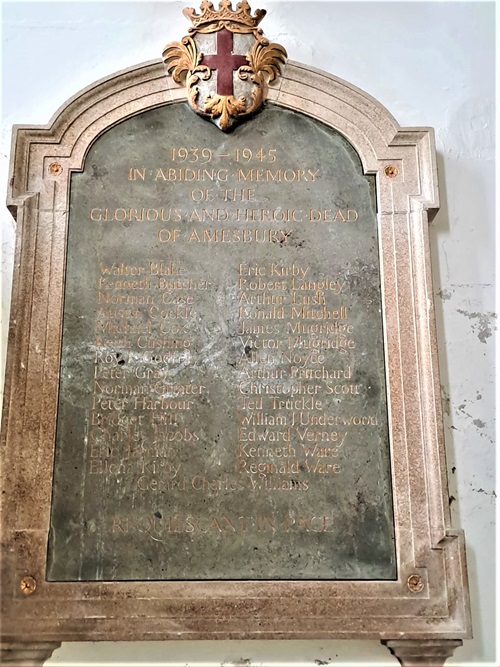 1939 – 1945
IN ABIDING MEMORY
OF THE
GLORIOUS AND HEROIC DEAD
OF AMESBURY
Walter Blake
Kenneth Butcher
Norman Case
Cockle
Michael
Keith Cushing
Peter Gray
Norman
Peter Harbour
Bridget Hill
Charles Jacobs
Eric
Ellena Kirby
Eric Kirby
Robert Langley
Arthur Lush
Ronald Mitchell
James Mugridge
Victor Mugridge
Allen Noyce
Arthur Pritchard
Christopher Scott
Ted Truckle
William J Underwood
Edward Verney
Kenneth Ware
Reginald Ware
Gerard Charles Williams
REQUIESCANT IN PACE